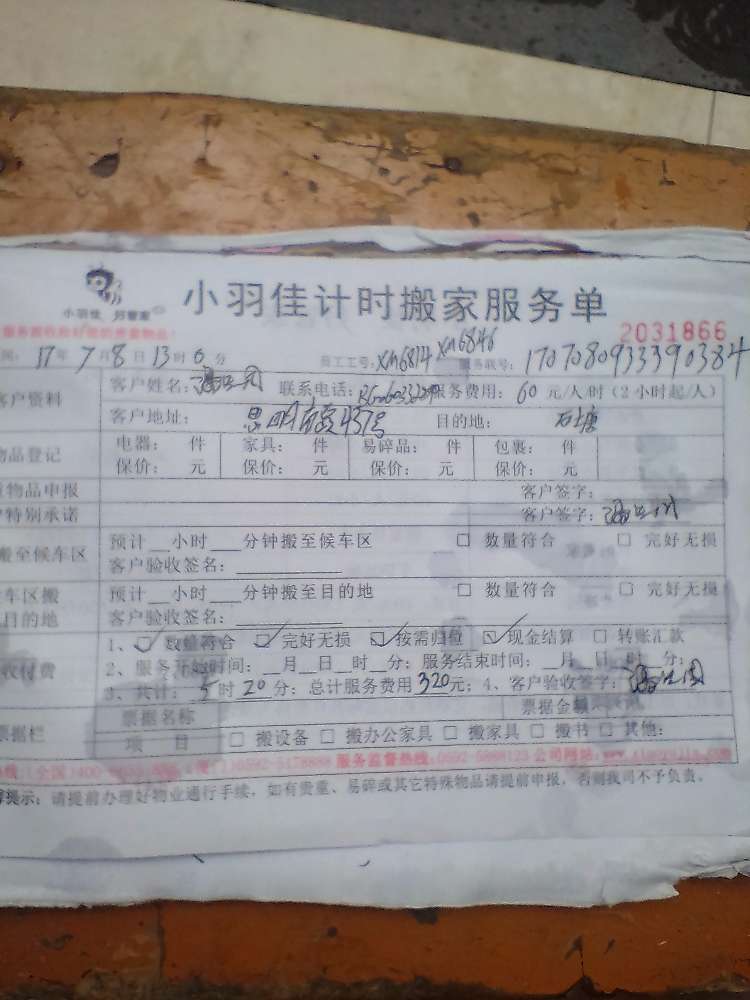 小羽佳 好管家
小羽佳计时搬家服务单
2031866
间: 17年 7月 8日 13时 0分 员工工号: XM6814 XM6846 服务联号: 1707080933390384
客户资料 客户姓名: 联系电话: 服务费用: 60 元/人/时(2小时起/人)
客户地址: 思明 437号 目的地: 石塘
物品登记 电器: 件 家具: 件 易碎品: 件 包裹: 件
保价: 元 保价: 元 保价: 元 保价: 元
物品申报 客户签字:
特别承诺 客户签字:
搬至候车区 预计__小时___分钟搬至候车区 □ 数量符合 □ 完好无损
客户验收签名:
车区搬 预计__小时___分钟搬至目的地 □ 数量符合 □ 完好无损
目的地 客户验收签名:
收付费 1、☑ 数量符合 ☑ 完好无损 ☑ 按需归位 ☑ 现金结算 □ 转账汇款
2、服务开始时间: __月__日__时 分; 服务结束时间: __月__日__时 分;
3、共计: 5时 20分; 总计服务费用 320元; 4、客户验收签字:
票据栏 票据名称 票据金额
项 目 □ 搬设备 □ 搬办公家具 □ 搬家具 □ 搬书 □ 其他:
(全国)400- 0592-5178888 服务监督热线:0592-5888123 公司网站:www.xiaoyujia.com
提示: 请提前办理好物业通行手续, 如有贵重、易碎或其它特殊物品请提前申报, 否则我司不予负责。